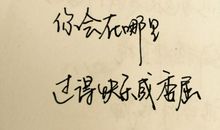 你会在哪里
过得快乐或委屈